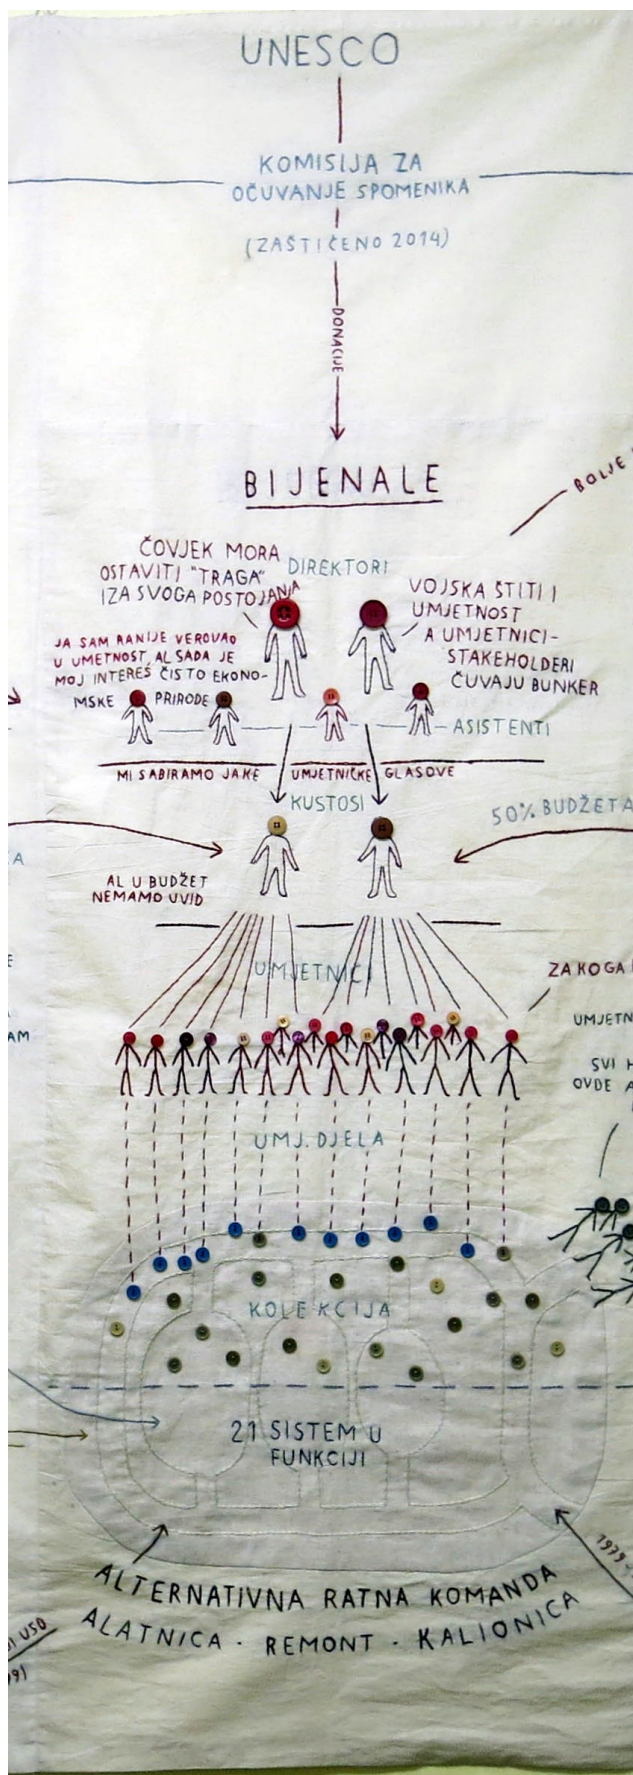 UNESCO
KOMISIJA ZA
OČUVANJE SPOMENIKA
(ZAŠTIČENO 2014)
DONACIJE
BIJENALE
BOLJE
ČOVJEK MORA
OSTAVITI "TRAGA"
IZA SVOGA POSTOJANJA
DIREKTORI
VOJSKA ŠTITI I
UMJETNOST
A UMJETNICI-
STAKEHOLDERI
ČUVAJU BUNKER
JA SAM RANIJE VEROVAO
U UMETNOST, AL SADA JE
MOJ INTERES ČISTO EKONO-
MSKE PRIRODE
ASISTENTI
MI SABIRAMO JAKE UMJETNIČKE GLASOVE
KUSTOSI
50% BUDŽETA
AL U BUDŽET
NEMAMO UVID
UMJETNICI
ZA KOGA
UMJETN
SVI
OVDE A
AM
UMJ. DJELA
KOLEKCIJA
21 SISTEM U
FUNKCIJI
1979
ALTERNATIVNA RATNA KOMANDA
ALATNICA · REMONT · KALIONICA
USD